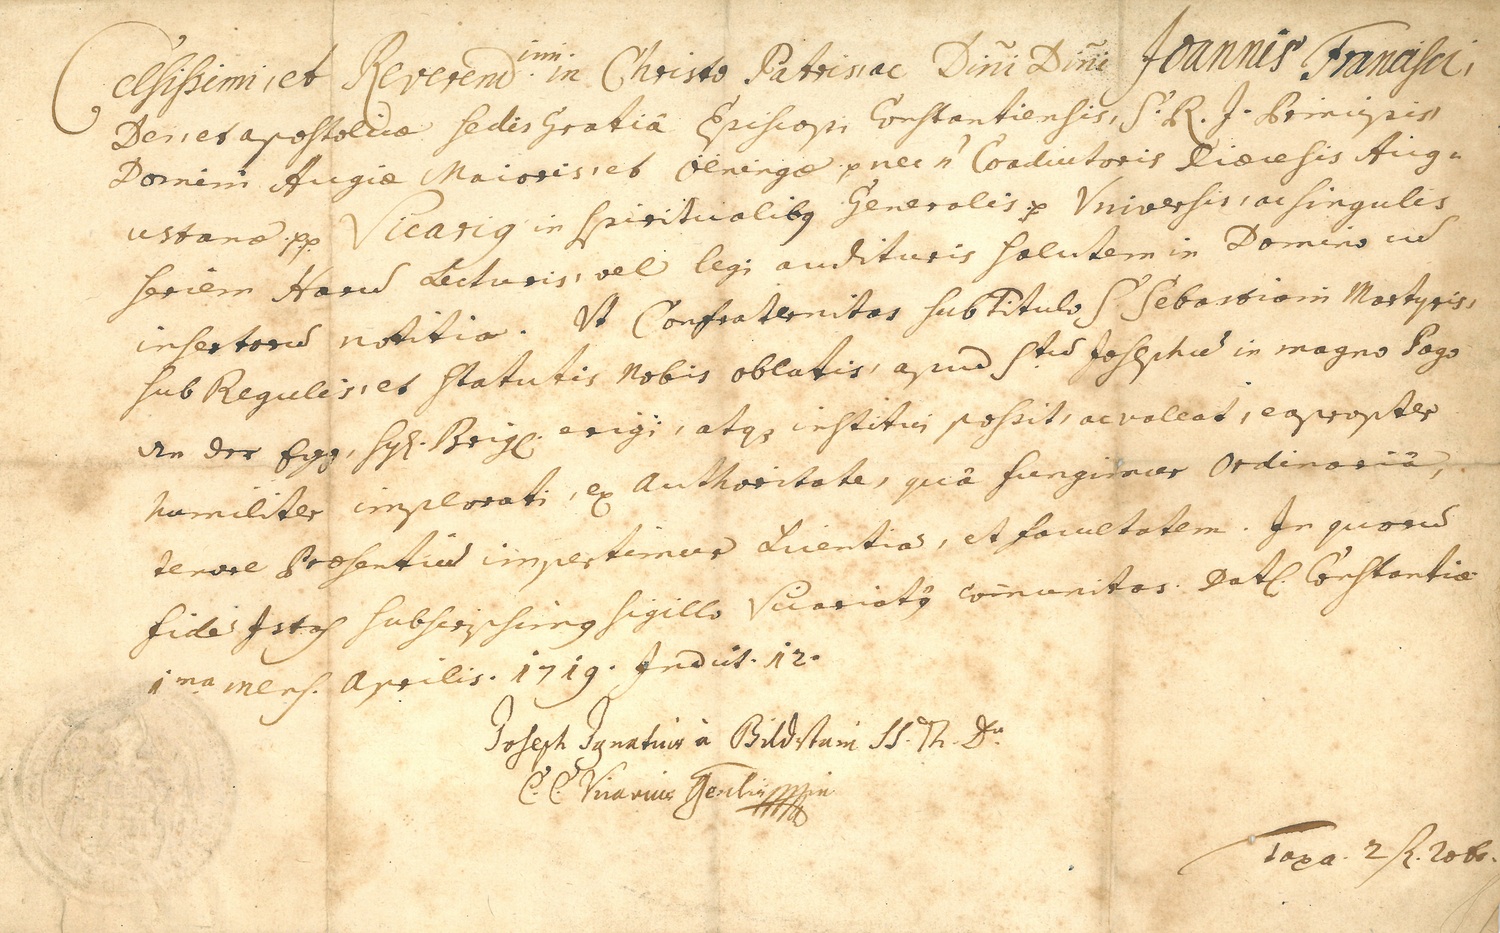 Celsissimi, et Reverend.imi in Christo Patris, ac Dñi Dñi Joannis Francisci,
Dei, et apostolicæ sedis Gratiâ Episcopi Constantiensis, S. R. J. Principis,
Domini Augiæ Maioris, et Öeningæ p nec ñ Coadiutoris Diæcesis Aug=
ustanæ pp Vicariꝰ in Spiritualibꝰ Generalis p Vniversis, ac singulis
seriem Harū Lecturis, vel legi audituris Salutem in Domino cū
insertorū notitia. Vt Confraternitas sub Titulo S Sebastiani Martyris,
sub Regulis, et statutis Nobis oblatis, apud S.tū Josephū in magno Pago
An der Egg, Syl. Brig. erigi, atqꝫ institui possit, ac valeat, eapropter
humiliter implorati, ex Authoritate, quâ fungimur Ordinariâ,
tenore Præsentiū impertimur Licentiā, et facultatem. In quorū
fidē Istas subscripsimꝰ sigillo Vicariatꝰ com̄unitas. Dat. Constantiæ
1ma mens. Aprilis. 1719. Indict. 12.
Joseph Ignatius à Bildstain SS. Th. Dr.
C. C. Vicarius Genlis
Taxa. 2 f. 20 xr.